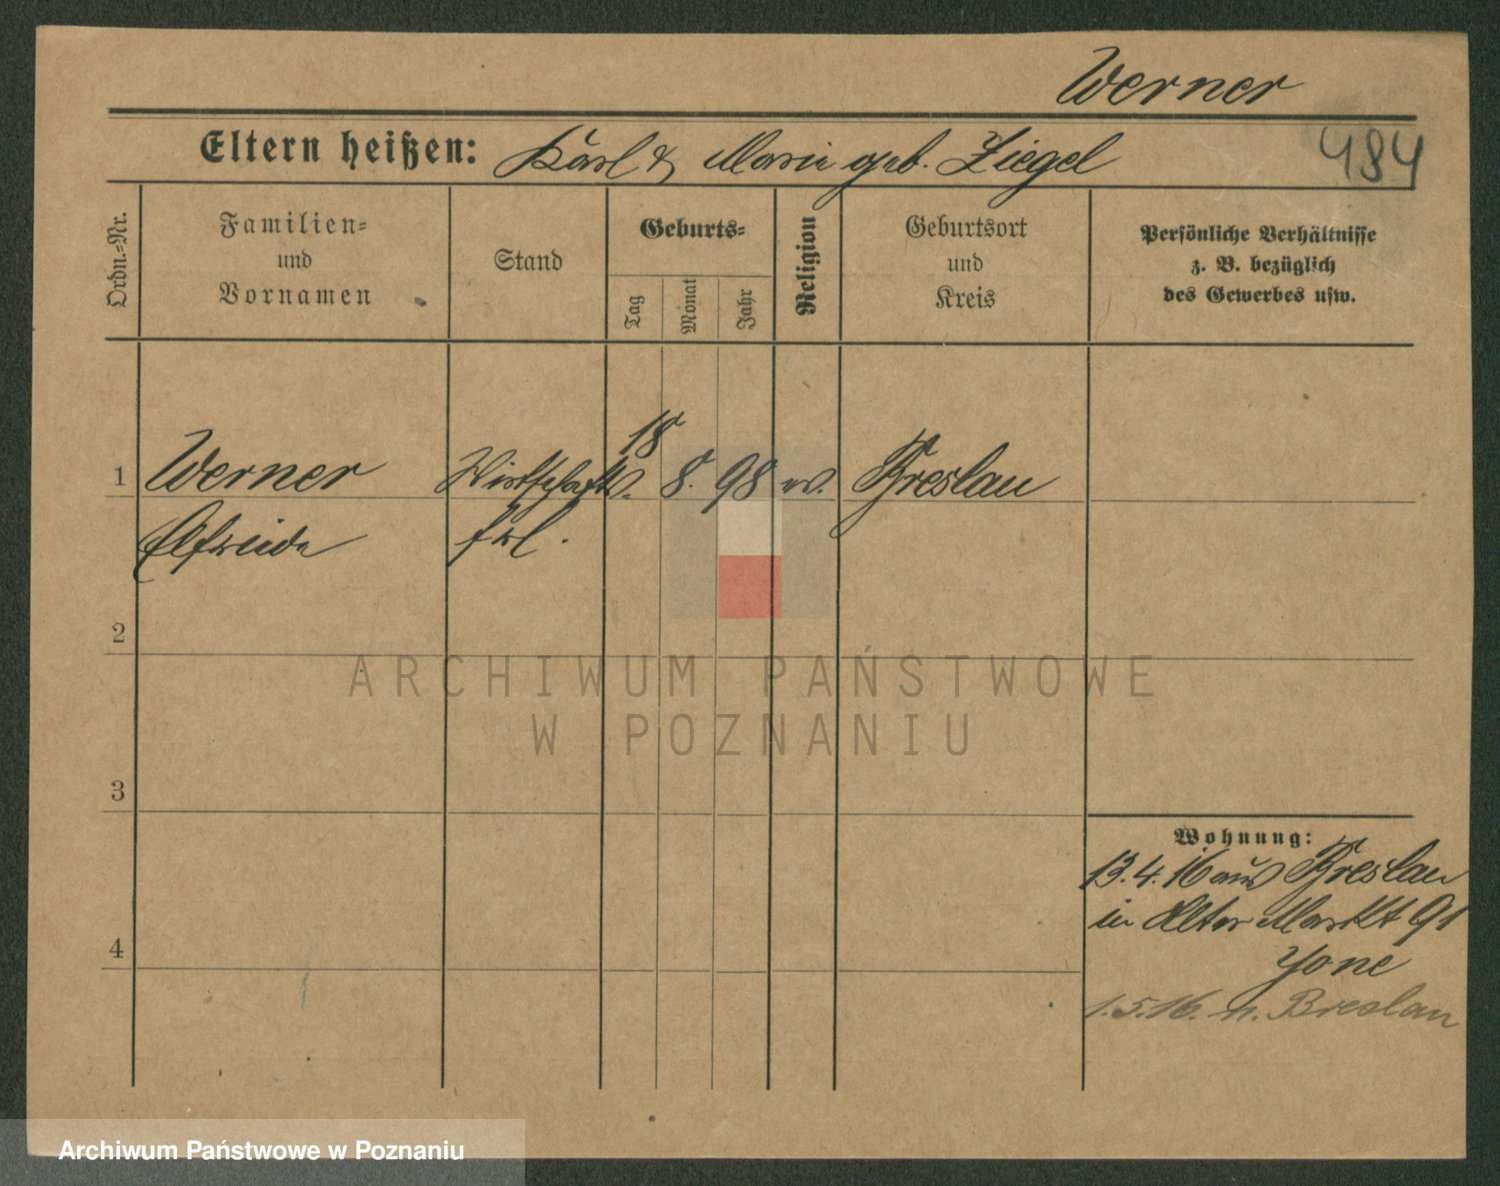 Werner
Eltern heißen: Karl & Marie geb. Ziegel
484
Ordn.-Nr.
Familien- und Vornamen
Stand
Geburts-
Tag
Monat
Jahr
Religion
Geburtsort und Kreis
Persönliche Verhältnisse
z. B. bezüglich
des Gewerbes usw.
1 Werner Wirtschafts. 18 8. 98 ev. Breslau
Elfriede frl.
2
3
4
Wohnung:
13.4.16 aus Breslau
in Alter Markt 91
1.5.16. n. Breslau
ARCHIWUM PAŃSTWOWE
W POZNANIU
Archiwum Państwowe w Poznaniu